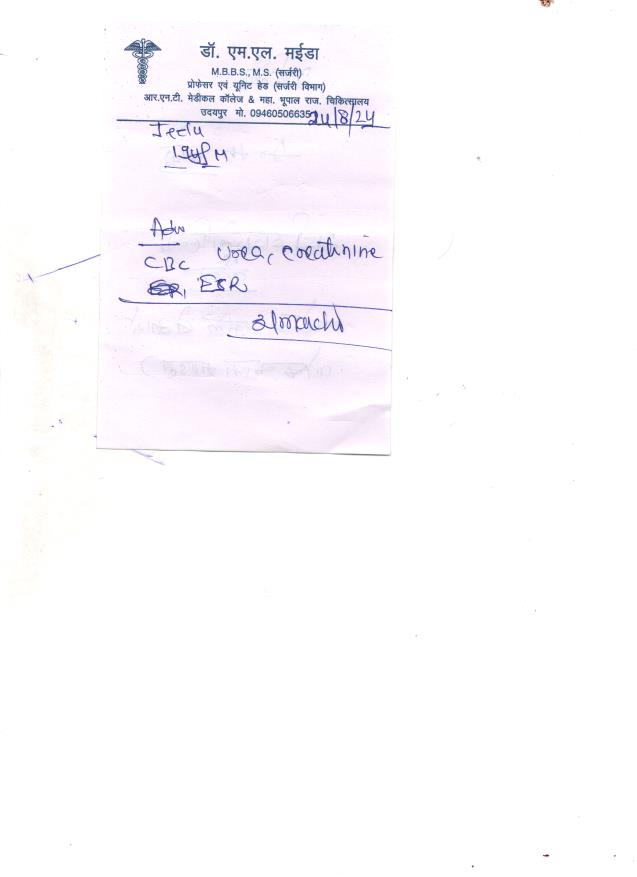 डॉ. एम.एल. मईडा
M.B.B.S., M.S. (सर्जरी)
प्रोफेसर एवं यूनिट हेड (सर्जरी विभाग)
आर.एन.टी. मेडीकल कॉलेज & महा. भूपाल राज. चिकित्सालय
उदयपुर मो. 09460506635
24/8/24
Jeetu
19y M
Adv
CBC Urea, Creatinine
ESR